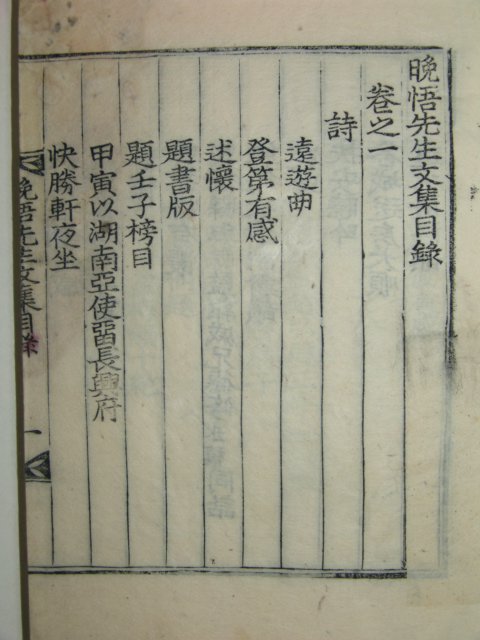 晩悟先生文集目錄
卷之一
詩
遠遊曲
登第有感
述懷
題書版
題壬子榜目
甲寅以湖南亞使留長興府
快勝軒夜坐
晩悟先生文集目錄
一